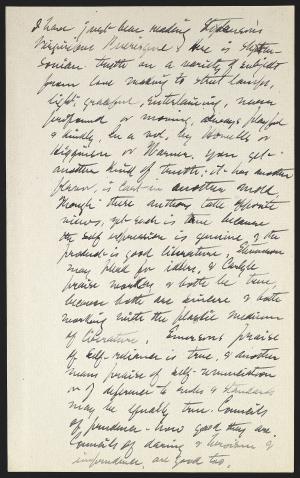 I have just been reading Stevenson's
Virginibus Puerisque & Here is Steven-
sonian truth on a variety of subjects
from love making to street lamps,
light, graceful, entertaining, never
profound or moving, always playful
& kindly. In a vol. by Howells or
Higginson or Warner, you get
another kind of truth; it has another
flavor, is cast in another mold,
though these authors take opposite
views, yet each is true because
the self expression is genuine & the
product is good literature. Stevenson
may plead for idlers, & Carlyle
praise workers & both be true,
because both are sincere & both
working with the plastic medium
of literature. Emersons praise
of self-reliance is true, & another
mans praise of self-renunciation
or of deference to codes & standards
may be equally true. Counsels
of prudence - how good they are.
Counsels of daring & heroism &
independence, are good too.